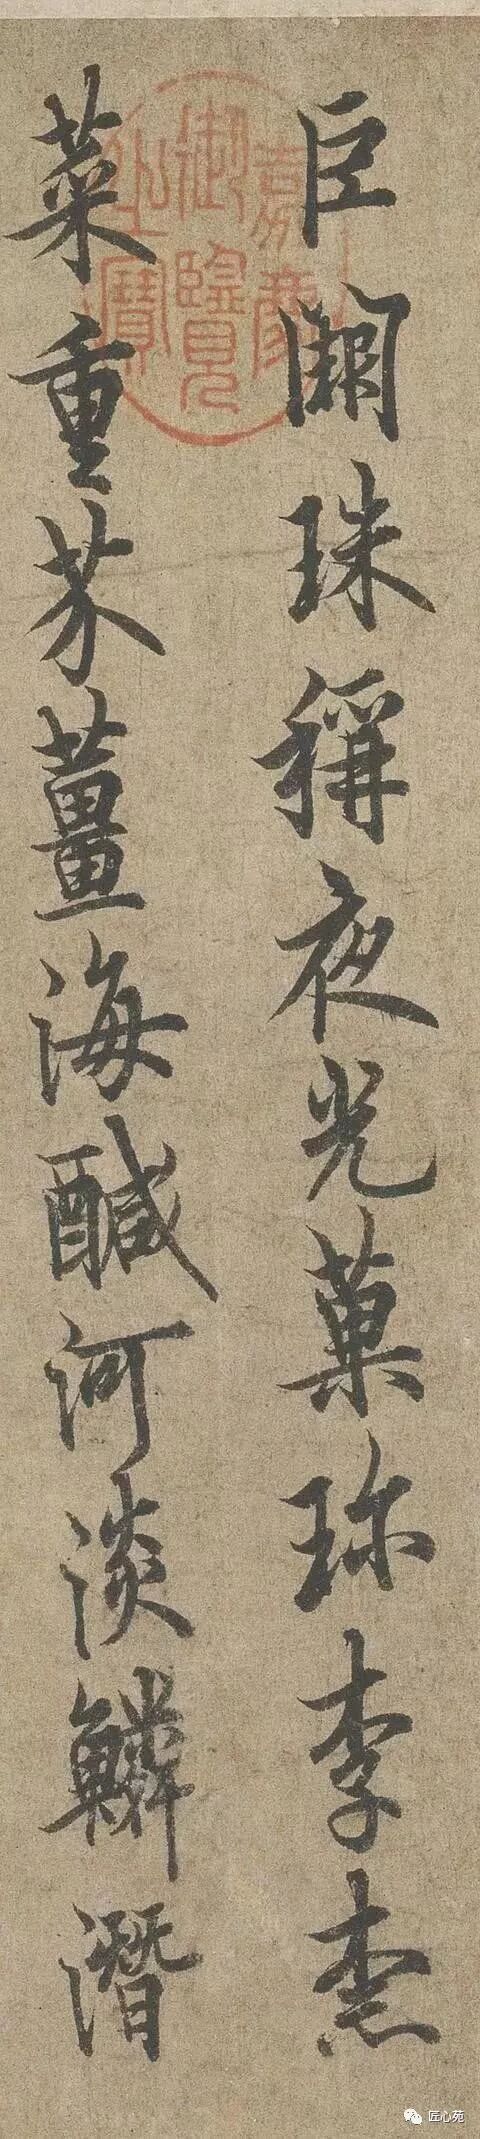 巨闕珠稱夜光菓珎李柰
菜重芥薑海醎河淡鱗潛
嘉慶御覽之寶
匠心苑